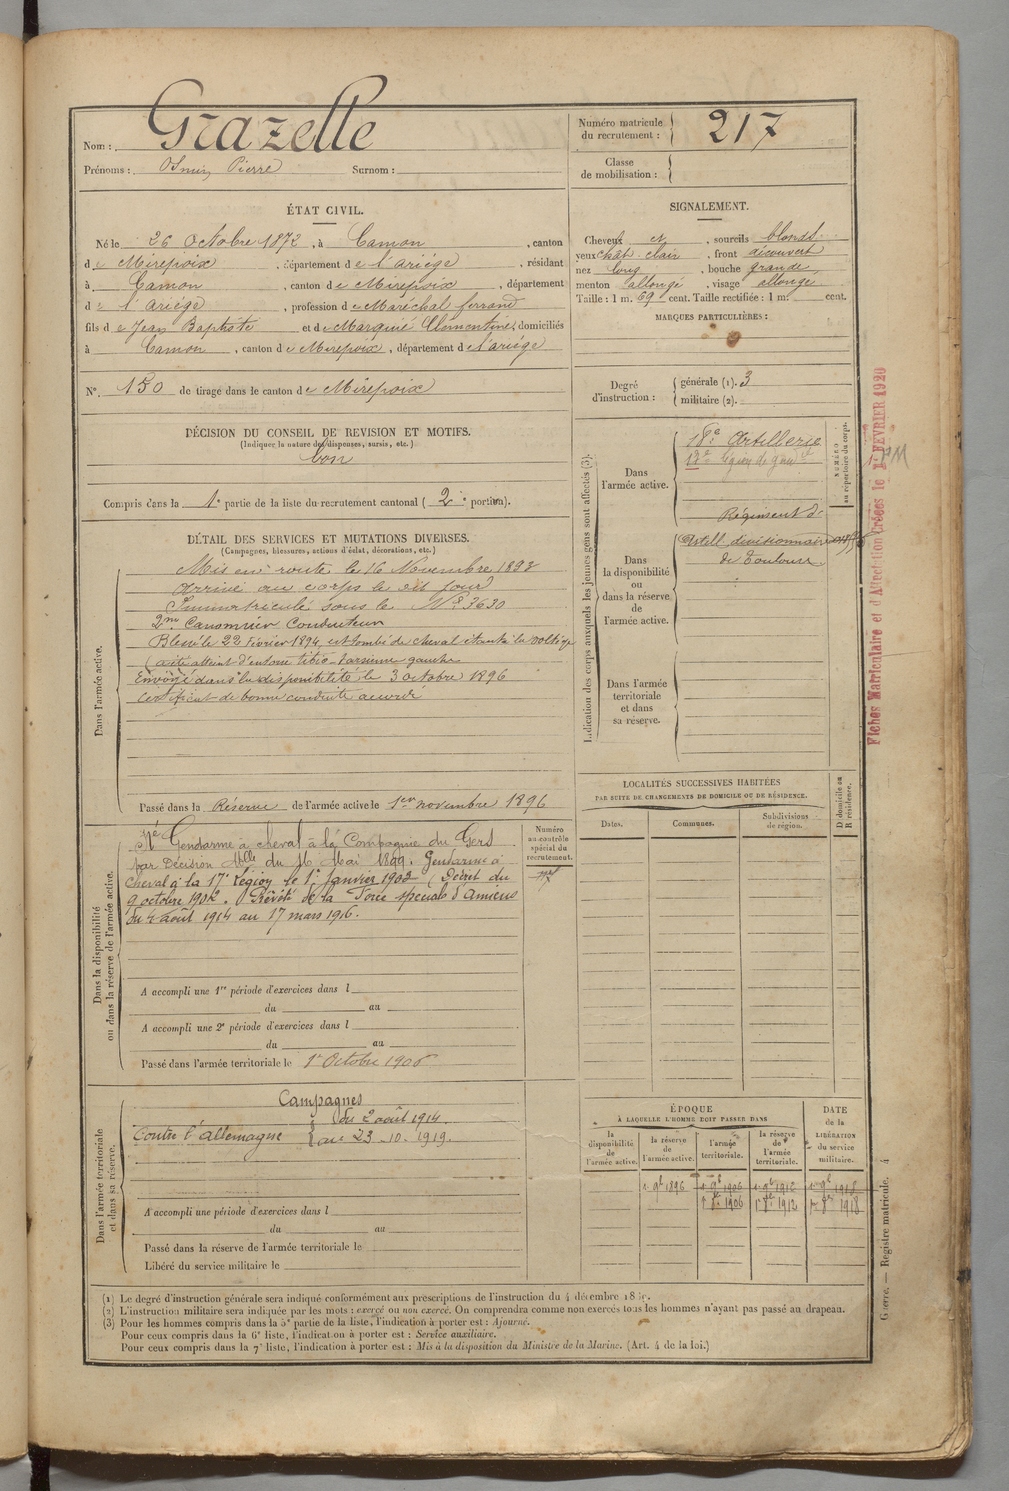 Nom : Grazelle
Prénoms : Pierre Surnom :
Numéro matricule
du recrutement : 217
Classe
de mobilisation :
ÉTAT CIVIL.
Né le 26 Octobre 1872, à Camon, canton
de Mirepoix, département de l'ariège, résidant
à Camon, canton de Mirepoix, département
de l'ariège, profession de Maréchal ferrand
fils de Jean Baptiste et de Marquié Clémentine, domiciliés
à Camon, canton de Mirepoix, département de l'ariège
N° 150 de tirage dans le canton de Mirepoix
SIGNALEMENT.
Cheveux et, sourcils blonds
yeux chat. clair, front découvert
nez long, bouche grande,
menton allongé, visage allongé
Taille : 1 m. 69 cent. Taille rectifiée : 1 m. cent.
MARQUES PARTICULIÈRES :
Degré
d'instruction :
générale (1). 3
militaire (2).
DÉCISION DU CONSEIL DE REVISION ET MOTIFS.
(Indiquer la nature des dispenses, sursis, etc.)
bon
Compris dans la 1e partie de la liste du recrutement cantonal (2e portion).
DÉTAIL DES SERVICES ET MUTATIONS DIVERSES.
(Campagnes, blessures, actions d'éclat, décorations, etc.)
Dans l'armée active.
Mis en route le 16 Novembre 1893
Arrivé au corps le dit jour
Immatriculé sous le N° 3630
2me Canonnier Conducteur
Blessé le 22 Février 1894, est tombé de cheval étant à la voltige
(a été atteint d'entorse tibio-tarsienne gauche
Envoyé dans la disponibilité le 3 octobre 1896
Certificat de bonne conduite accordé
Passé dans la Réserve de l'armée active le 1er novembre 1896
Indication des corps auxquels les jeunes gens sont affectés (3).
NUMÉRO
au répertoire du corps.
Dans
l'armée active.
18e Artillerie
légion de gend
Dans
la disponibilité
ou
dans la réserve
de
l'armée active.
Régiment d'
Artill. divisionnaire
de Toulouse
Dans l'armée
territoriale
et dans
sa réserve.
Fiches Matriculaire et d'Affectation Créées le 1er FÉVRIER 1920
LOCALITÉS SUCCESSIVES HABITÉES
PAR SUITE DE CHANGEMENTS DE DOMICILE OU DE RÉSIDENCE.
Dates. Communes. Subdivisions
de région.
D domicile ou
R résidence.
Dans la disponibilité
ou dans la réserve de l'armée active.
Numéro
au contrôle
spécial du
recrutement.
Né Gendarme à cheval à la Compagnie du Gers
par Décision Mlle du 16 Mai 1899. Gendarme à
Cheval à la 17e Légion le 1er Janvier 1902 (Décret du
9 octobre 1902. Prévôté de la Force spéciale d'Amiens
du 4 août 1914 au 17 mars 1916.
A accompli une 1re période d'exercices dans l
du au
A accompli une 2e période d'exercices dans l
du au
Passé dans l'armée territoriale le 1er Octobre 1906
Dans l'armée territoriale
et dans sa réserve.
Campagnes
Contre l'allemagne
du 2 août 1914
au 23-10-1919.
A accompli une période d'exercices dans l
du au
Passé dans la réserve de l'armée territoriale le
Libéré du service militaire le
ÉPOQUE
À LAQUELLE L'HOMME DOIT PASSER DANS
la
disponibilité
de
l'armée active.
la réserve
de
l'armée active.
l'armée
territoriale.
la réserve
de
l'armée
territoriale.
DATE
de la
LIBÉRATION
du service
militaire.
1er 9bre 1896 1er 9bre 1906 1er 9bre 1912 1er 9bre 1918
1er 8bre 1906 1er 8bre 1912 1er 8bre 1918
Guerre. — Registre matricule. 4
(1) Le degré d'instruction générale sera indiqué conformément aux prescriptions de l'instruction du 4 décembre
(2) L'instruction militaire sera indiquée par les mots : exercé ou non exercé. On comprendra comme non exercés tous les hommes n'ayant pas passé au drapeau.
(3) Pour les hommes compris dans la 5e partie de la liste, l'indication à porter est : Ajourné.
Pour ceux compris dans la 6e liste, l'indication à porter est : Service auxiliaire.
Pour ceux compris dans la 7e liste, l'indication à porter est : Mis à la disposition du Ministre de la Marine. (Art. 4 de la loi.)